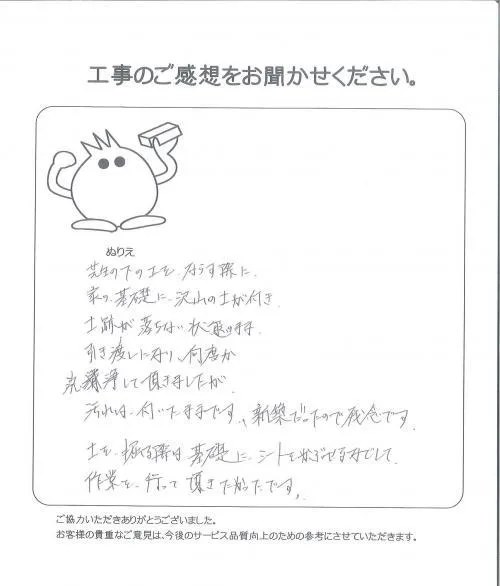 工事のご感想をお聞かせください。
ぬりえ
芝生の下の土を、ならす際に、
家の、基礎に、沢山の土が付き、
土跡が落ちない状態のまま、
引き渡しになり、何度か
洗浄して頂きましたが、
汚れは、付いたままです。新築だったので残念です。
土を、掘る際は基礎に、シートをかぶせるなどして、
作業を、行って頂きたかったです。
ご協力いただきありがとうございました。
お客様の貴重なご意見は、今後のサービス品質向上のための参考にさせていただきます。